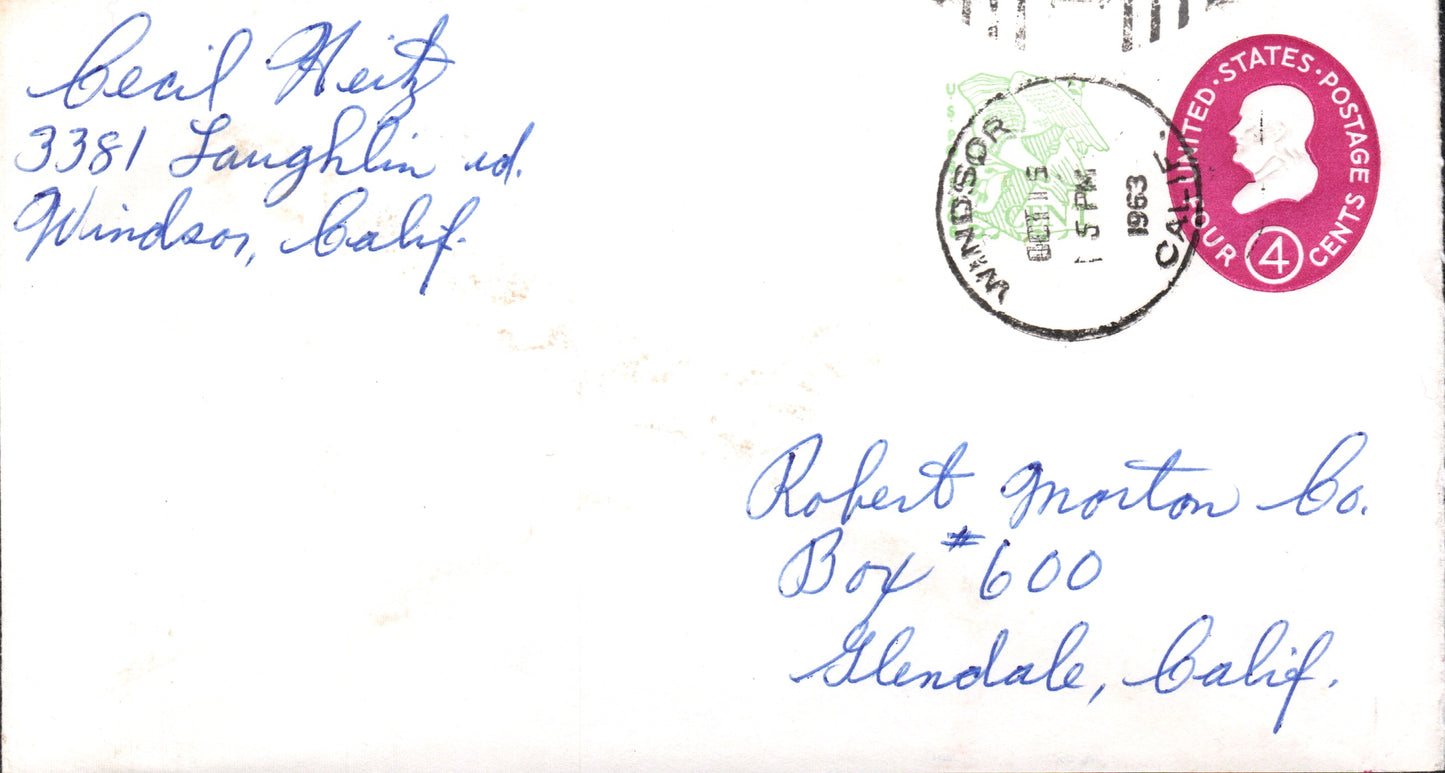 Cecil Heitz
3381 Laughlin rd.
Windsor, Calif.
WINDSOR CALIF.
OCT 15
5 PM
1963
UNITED · STATES · POSTAGE
FOUR 4 CENTS
U S P
CENT
Robert Morton Co.
Box #600
Glendale, Calif.